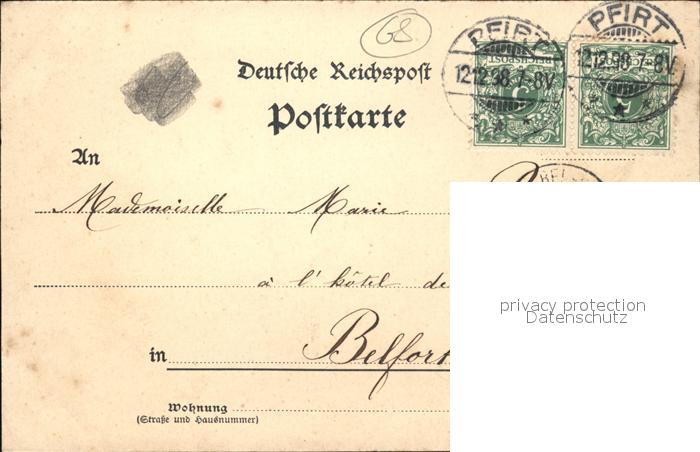 68
PFIRT PFIRT
12.12.98.7-8V. 12.12.98.7-8V.
REICHSPOST
5 5
Deutsche Reichspost
Postkarte
An
Mademoiselle Marie
à l'hôtel de
in Belfort
privacy protection
Datenschutz
Wohnung
(Straße und Hausnummer)